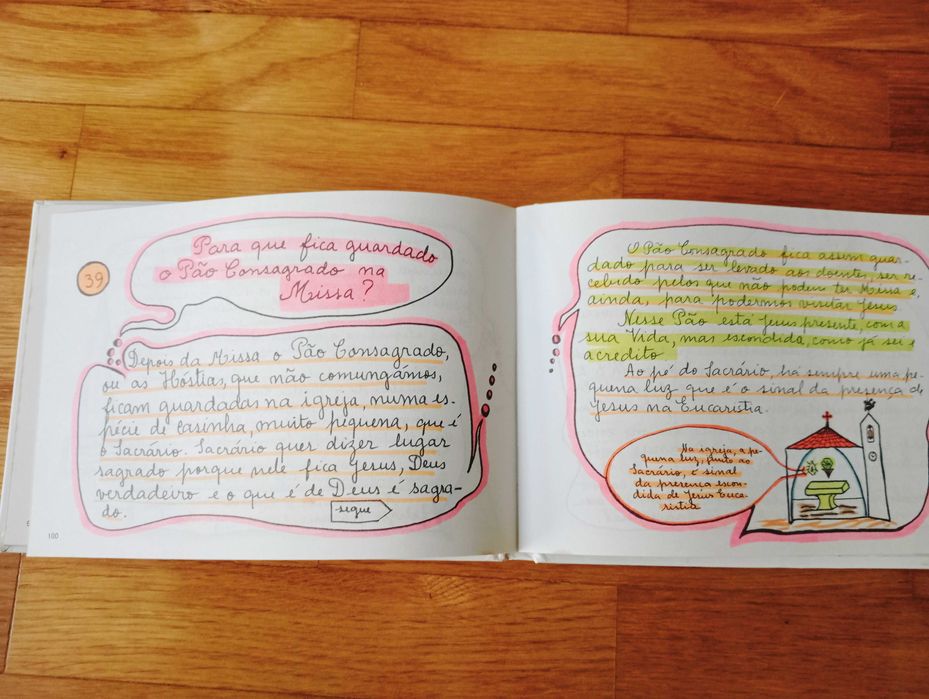 39
Para que fica guardado
o Pão Consagrado na
Missa?
Depois da Missa o Pão Consagrado,
ou as Hóstias, que não comungámos,
ficam guardadas na igreja, numa es-
pécie de casinha, muito pequena, que é
o Sacrário. Sacrário quer dizer lugar
sagrado porque nele fica Jesus, Deus
verdadeiro e o que é de Deus é sagra-
do.
segue
100
O Pão Consagrado fica assim guar-
dado para ser levado aos doentes, ser re-
cebido pelos que não podem ter Missa e,
ainda, para podermos visitar Jesus.
Nesse Pão está Jesus presente, com a
sua Vida, mas escondida, como já sei e
acredito.
Ao pé do Sacrário, há sempre uma pe-
quena luz que é o sinal da presença de
Jesus na Eucaristia.
Na igreja, a pe-
quena luz, junto ao
Sacrário, é sinal
da presença escon-
dida de Jesus Euca-
ristia